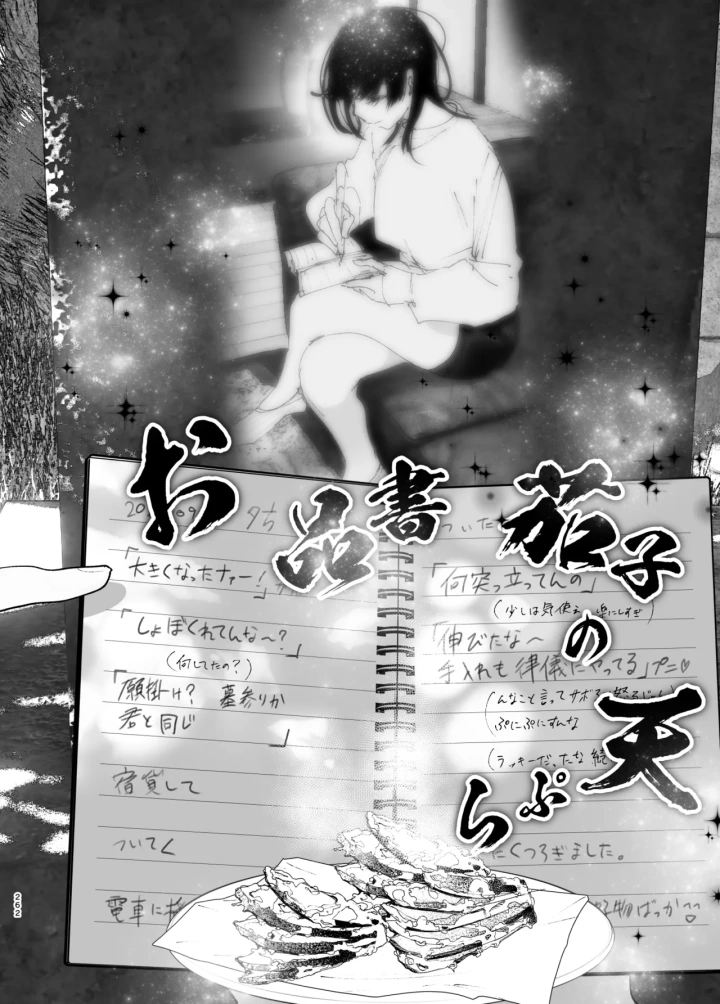 お品書
茄子の天ぷら
ついた
「何突っ立ってんの」
(少しは気使え
「伸びたな〜
手入れも律儀にやってる」プニ♡
んなこと言ってサボ
ぷにぷにすんな
(ラッキーだったな
にくつろぎました。
物ばっか
20 09
「大きくなったナァー!」
「しょぼくれてんな〜?」
(何してたの?)
「願掛け? 墓参りか
君と同じ」
宿貸して
ついてく
電車に
262